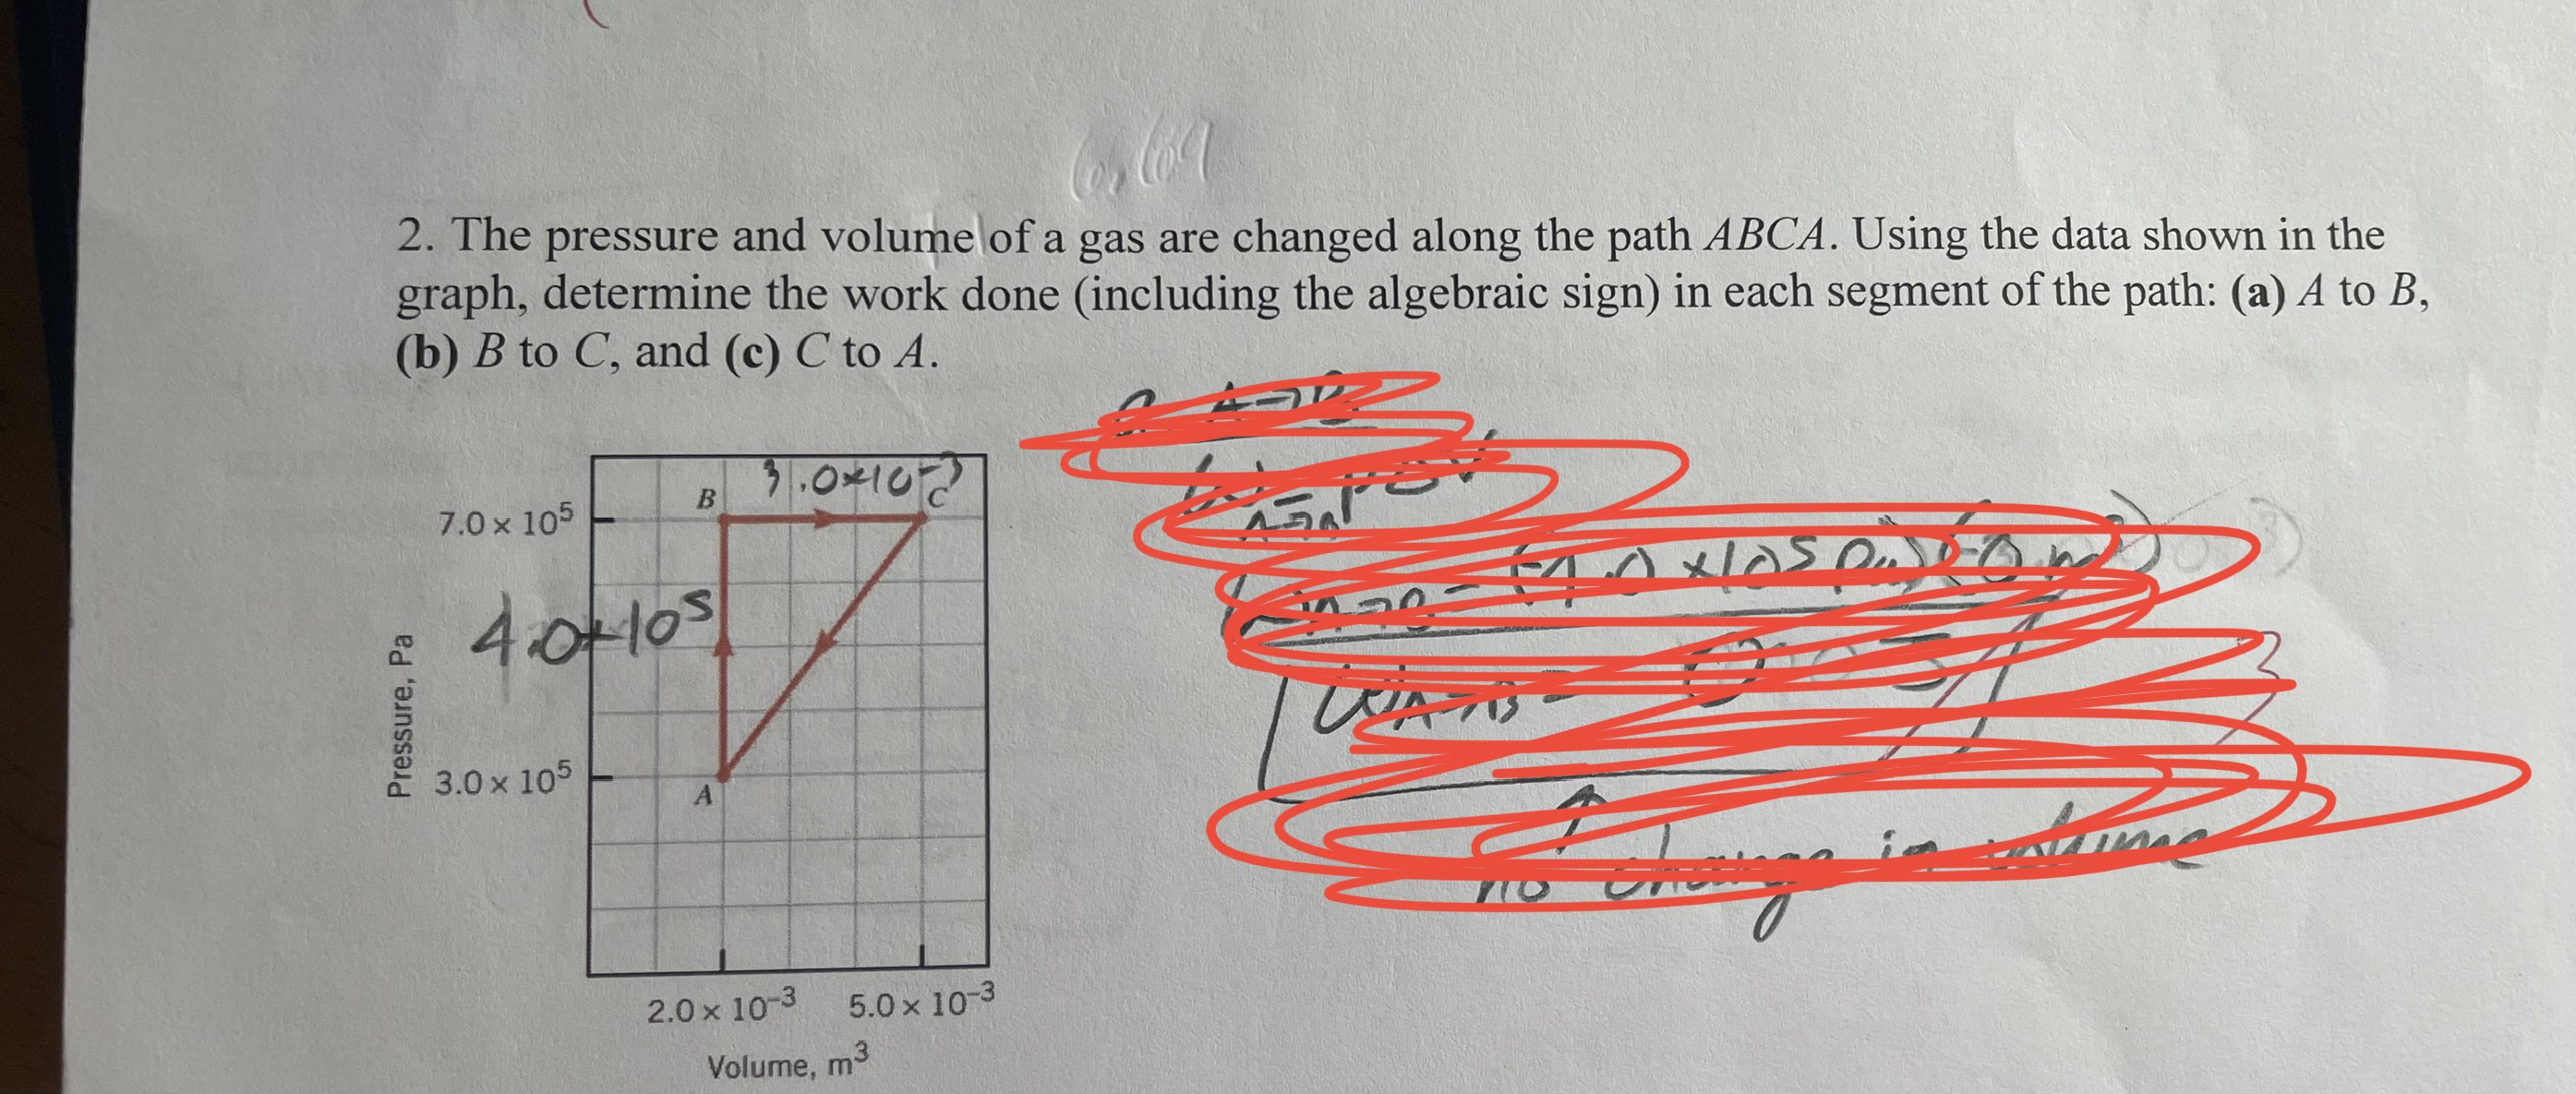 2. The pressure and volume of a gas are changed along the path ABCA. Using the data shown in the
graph, determine the work done (including the algebraic sign) in each segment of the path: (a) A to B,
(b) B to C, and (c) C to A.
3.0×10⁻³
B
C
7.0 × 10⁵
4.0×10⁵
Pressure, Pa
3.0 × 10⁵
A
2.0 × 10⁻³ 5.0 × 10⁻³
Volume, m³
no change in volume